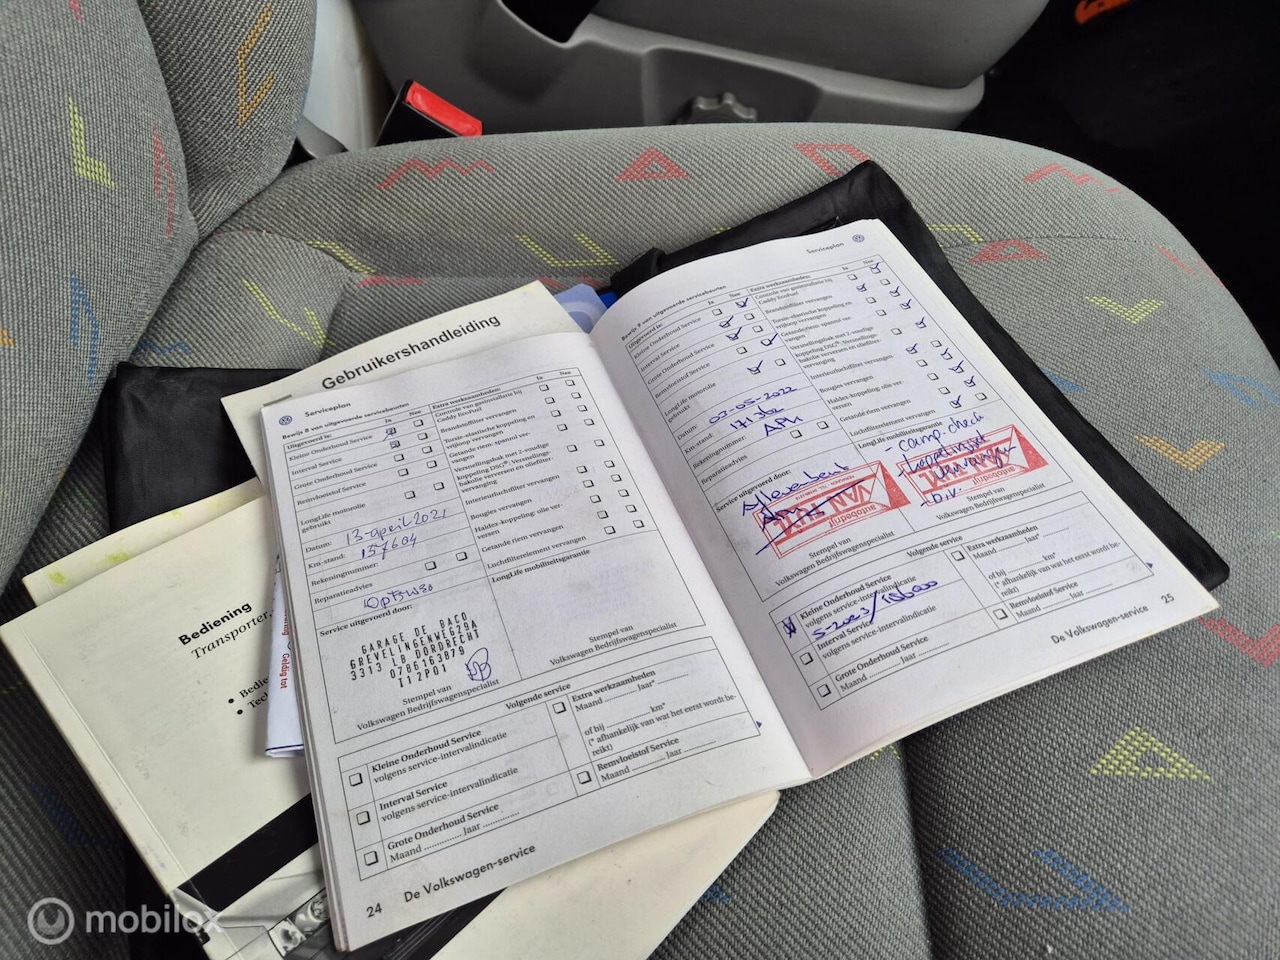 Gebruikershandleiding
Bediening
Transporter,
Geldig tot
Serviceplan
Bewijs 8 van uitgevoerde servicebeurten
Uitgevoerd is:
Ja
Nee
Kleine Onderhoud Service
Interval Service
Grote Onderhoud Service
Remvloeistof Service
LongLife motorolie
gebruikt
Datum: 13-april 2021
Km-stand: 157604
Rekeningnummer:
Reparatieadvies
Service uitgevoerd door:
GARAGE DE BACO
GREVELINGENWEG29A
3313 LB DORDRECHT
0786163879
I12P01
Stempel van
Volkswagen Bedrijfswagenspecialist
Extra werkzaamheden:
Ja
Nee
Controle van gasinstallatie bij
Caddy EcoFuel
Brandstoffilter vervangen
Torsie-elastische koppeling en
vrijloop vervangen
Getande riem: spanrol ver-
vangen
Versnellingsbak met 2-voudige
koppeling DSG®: Versnellings-
bakolie verversen en oliefilter-
vervanging
Interieurluchtfilter vervangen
Bougies vervangen
Haldex-koppeling: olie ver-
versen
Getande riem vervangen
Luchtfilterelement vervangen
LongLife mobiliteitsgarantie
Stempel van
Volkswagen Bedrijfswagenspecialist
Volgende service
Kleine Onderhoud Service
volgens service-intervalindicatie
Interval Service
volgens service-intervalindicatie
Grote Onderhoud Service
Maand ............ Jaar ............
Extra werkzaamheden
Maand ............ Jaar* ............
of bij ............ km*
(* afhankelijk van wat het eerst wordt be-
reikt)
Remvloeistof Service
Maand ............ Jaar ............
24
De Volkswagen-service
Serviceplan
Bewijs 9 van uitgevoerde servicebeurten
Uitgevoerd is:
Ja
Nee
Kleine Onderhoud Service
Interval Service
Grote Onderhoud Service
Remvloeistof Service
LongLife motorolie
gebruikt
Datum: 03-05-2022
Km-stand:
Rekeningnummer:
Reparatieadvies
Service uitgevoerd door:
autobedrijf
Stempel van
Volkswagen Bedrijfswagenspecialist
Extra werkzaamheden:
Ja
Nee
Controle van gasinstallatie bij
Caddy EcoFuel
Brandstoffilter vervangen
Torsie-elastische koppeling en
vrijloop vervangen
Getande riem: spanrol ver-
vangen
Versnellingsbak met 2-voudige
koppeling DSG®: Versnellings-
bakolie verversen en oliefilter-
vervanging
Interieurluchtfilter vervangen
Bougies vervangen
Haldex-koppeling: olie ver-
versen
Getande riem vervangen
Luchtfilterelement vervangen
LongLife mobiliteitsgarantie
- camp. check
autobedrijf
Stempel van
Volkswagen Bedrijfswagenspecialist
Volgende service
Kleine Onderhoud Service
volgens service-intervalindicatie
5-2023/
Interval Service
volgens service-intervalindicatie
Grote Onderhoud Service
Maand ............ Jaar ............
Extra werkzaamheden
Maand ............ Jaar* ............
of bij ............ km*
(* afhankelijk van wat het eerst wordt be-
reikt)
Remvloeistof Service
Maand ............ Jaar ............
De Volkswagen-service
25
mobilox